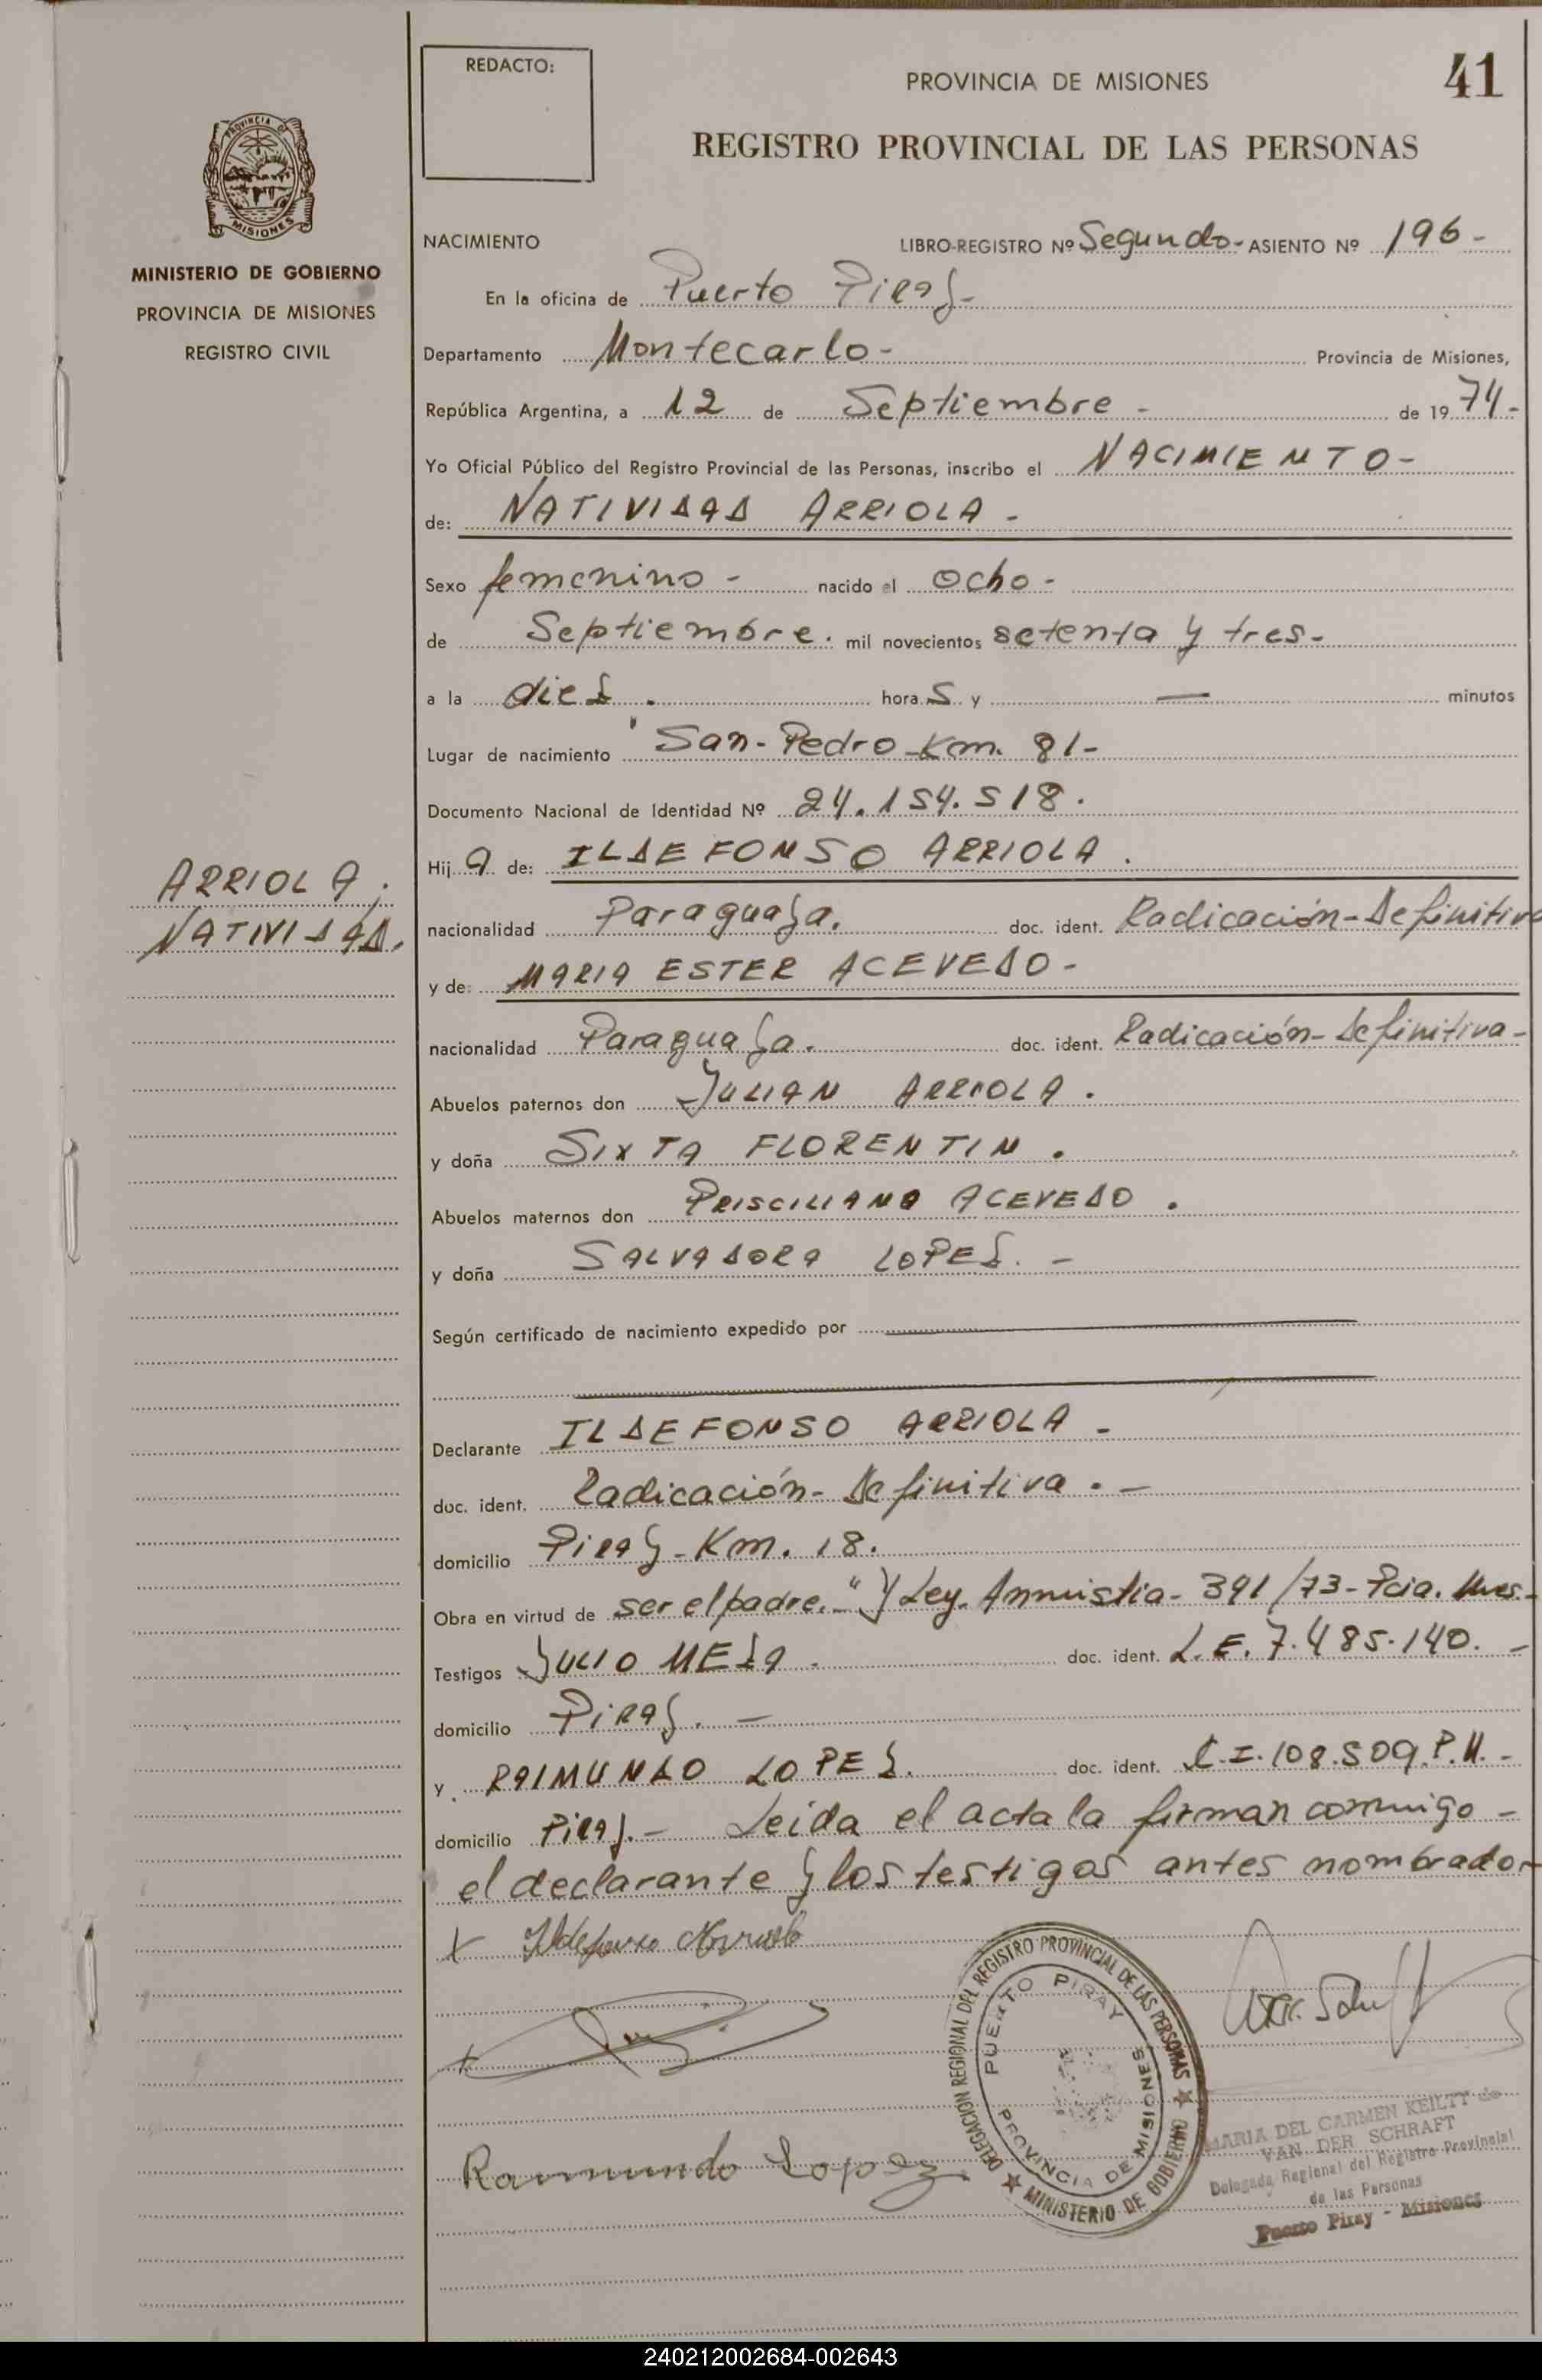 REDACTO:
PROVINCIA DE MISIONES
41
REGISTRO PROVINCIAL DE LAS PERSONAS
PROVINCIA DE
MISIONES
MINISTERIO DE GOBIERNO
PROVINCIA DE MISIONES
REGISTRO CIVIL
NACIMIENTO LIBRO-REGISTRO Nº Segundo- ASIENTO Nº 196-
En la oficina de Puerto Piray-
Departamento Montecarlo- Provincia de Misiones,
República Argentina, a 12 de Septiembre - de 1974-
Yo Oficial Público del Registro Provincial de las Personas, inscribo el NACIMIENTO-
de: NATIVIDAD ARRIOLA -
Sexo femenino - nacido el ocho -
de Septiembre. mil novecientos setenta y tres-
a la diez . horas y — minutos
Lugar de nacimiento San-Pedro-Km. 81-
Documento Nacional de Identidad Nº 24.154.518.
Hija de: ILDEFONSO ARRIOLA.
ARRIOLA,
NATIVIDAD.
nacionalidad Paraguaya. doc. ident. Radicación-Definitiva
y de: MARIA ESTER ACEVEDO-
nacionalidad Paraguaya. doc. ident. Radicación-Definitiva-
Abuelos paternos don JULIAN ARRIOLA.
y doña SIXTA FLORENTIN.
Abuelos maternos don PRISCILIANO ACEVEDO.
y doña SALVADORA LOPEZ. -
Según certificado de nacimiento expedido por
Declarante ILDEFONSO ARRIOLA -
doc. ident. Radicación-Definitiva. -
domicilio Piray-Km. 18.
Obra en virtud de ser el padre."-y Ley. Amnistia- 391/73-Pcia. Mnes.-
Testigos JULIO MEZA. doc. ident. L.E. 7.485.140. -
domicilio Piray. -
y RAIMUNDO LOPEZ. doc. ident. C.I. 108.509.P.M. -
domicilio Piray.- Leida el acta la firman conmigo-
el declarante y los testigos antes nombrados-
x Ildefonso Arriola
Raimundo Lopez
DELEGACION REGIONAL DEL REGISTRO PROVINCIAL DE LAS PERSONAS
MINISTERIO DE GOBIERNO
PUERTO PIRAY
PROVINCIA DE MISIONES
MARIA DEL CARMEN KEILTY de
VAN DER SCHRAFT
Delegada Regional del Registro Provincial
de las Personas
Puerto Piray - Misiones
240212002684-002643